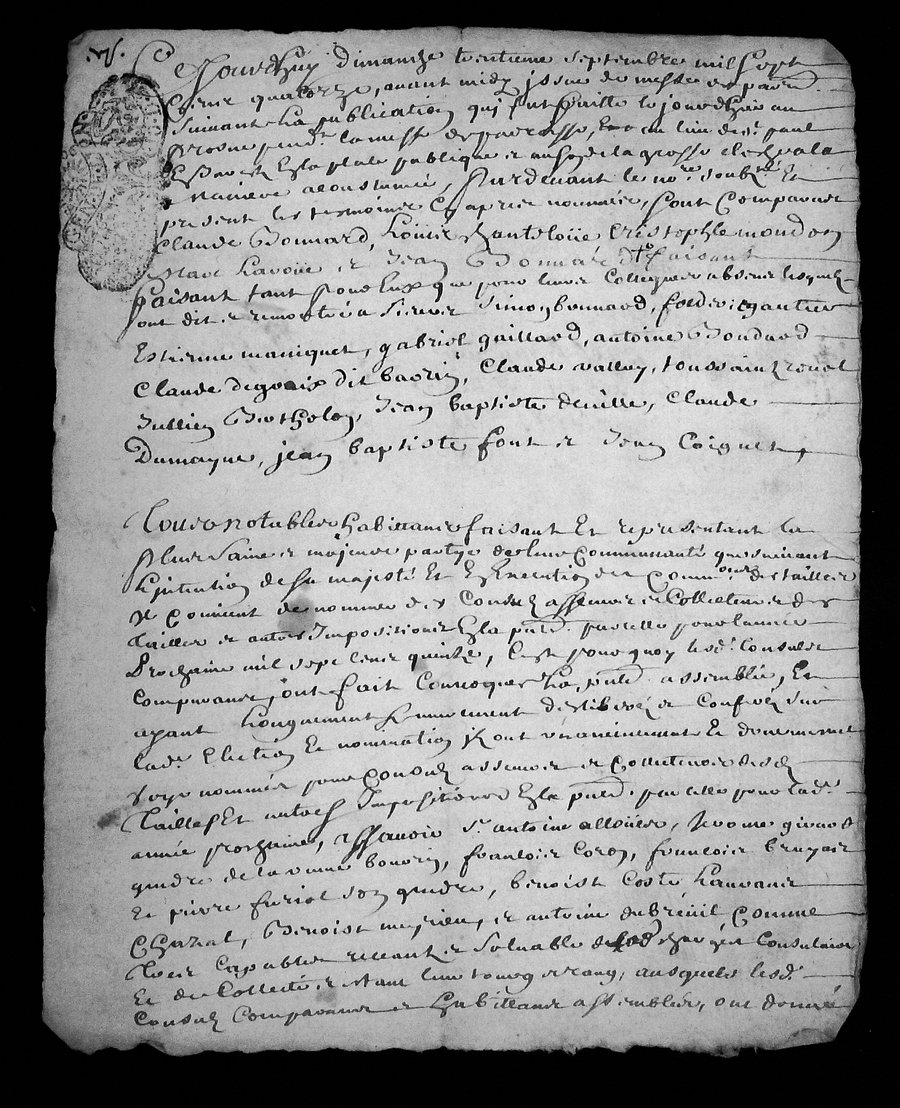 Ce Jourdhuy dimanche trentieme septembre mil sept
Cents quatorze, avant midy issue de messe de parr.
Suivant La publication qui sest faitte le jourdhuy au
prosne pend.t la messe de parroisse, Et au lieu de St paul
En Jarest Enla place publique et au son de la grosse cloche a la
maniere acoustumée, Pardevant le no.re soubz.né Et
present les tesmoins Cy apres nommés, sont Comparus
Claude Bonnard, Louis Chanteloüe Cristophle mondon
Marc Lavoüe et Jean Bonnard
faisant tant pour Eux que pour leurs Collegues absens lesquels
ont dit et remontré a Sieurs Simon bonnard, gautier
Estienne maniquet, gabriel gaillard, antoine Bonnard
Claude degraix dit baorin, Claude valluy, toussaint
Jullien Bertholon, Jean baptiste deville, Claude
Dumayne, jean baptiste font et Jean Coignet,
Tous notables habittants faisant Et representant la
plus Saine et majeure partye de leur Communauté que suivant
L'intention de Sa majesté Et En Execution des Comm.ons des tailles
Il Convient de nommer des Consuls asseeurs et Collecteurs des
tailles et autres Impositions En la p.nte parcelle pour lannée
Prochaine mil sept cents quinze, C'est pourquoy lesd. Consuls
Comparants, ont fait Convoquer La p.nte assemblée, Et
ayant Longuement Et meurement deslibéré et Conferé sur
lad.e Election Et nomination ils ont unanimement Et dune mesme
Voye nommés pour Consuls asseeurs et Collecteurs desd.
Tailles Et autres Impositions En la p.nte parcelle pour lad.e
année prochaine, assavoir Sr antoine alloües, Jerome
gendre de la veuve bonrin, francois Coron, francois bruyas
Et pierre furiol son gendre, benoist Coste
Chazal, Benoist meyrieu, et antoine dubreüil Comme
Tous Capables rescents et Solvables desd. Charges Consulaires
Et de Collecte et estant leur tour et rang, ausquels lesd.
Consuls Comparants et habittants assemblés, ont donné